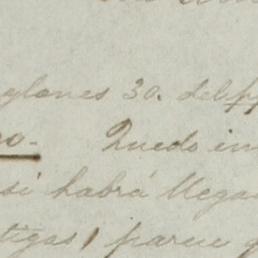 glones 30. del pp
no. Quedo in
si habrá llega
tigas, parece q